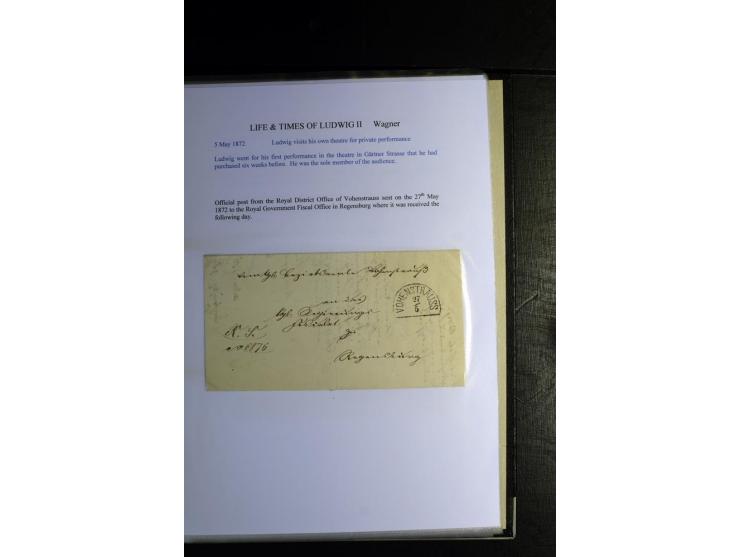 LIFE & TIMES OF LUDWIG II Wagner
5 May 1872 Ludwig visits his own theatre for private performance
Ludwig went for his first performance in the theatre in Gärtner Strasse that he had
purchased six weeks before. He was the sole member of the audience.
Official post from the Royal District Office of Vohenstrauss sent on the 27th May
1872 to the Royal Government Fiscal Office in Regensburg where it was received the
following day.
VOHENSTRAUSS
27
an das
kgl. Regierungs
Fiskalat
zu
Regensburg